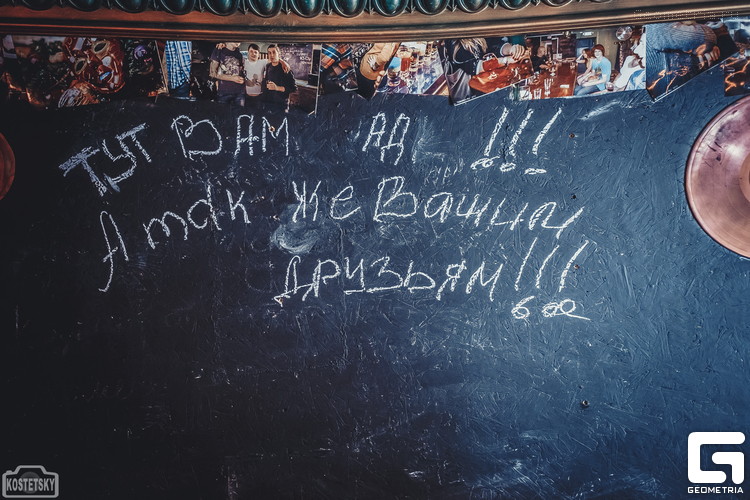 ТУТ ВАМ АД !!!
А так же Вашим
ДРУЗЬЯМ!!!
KOSTETSKY
GEOMETRIA